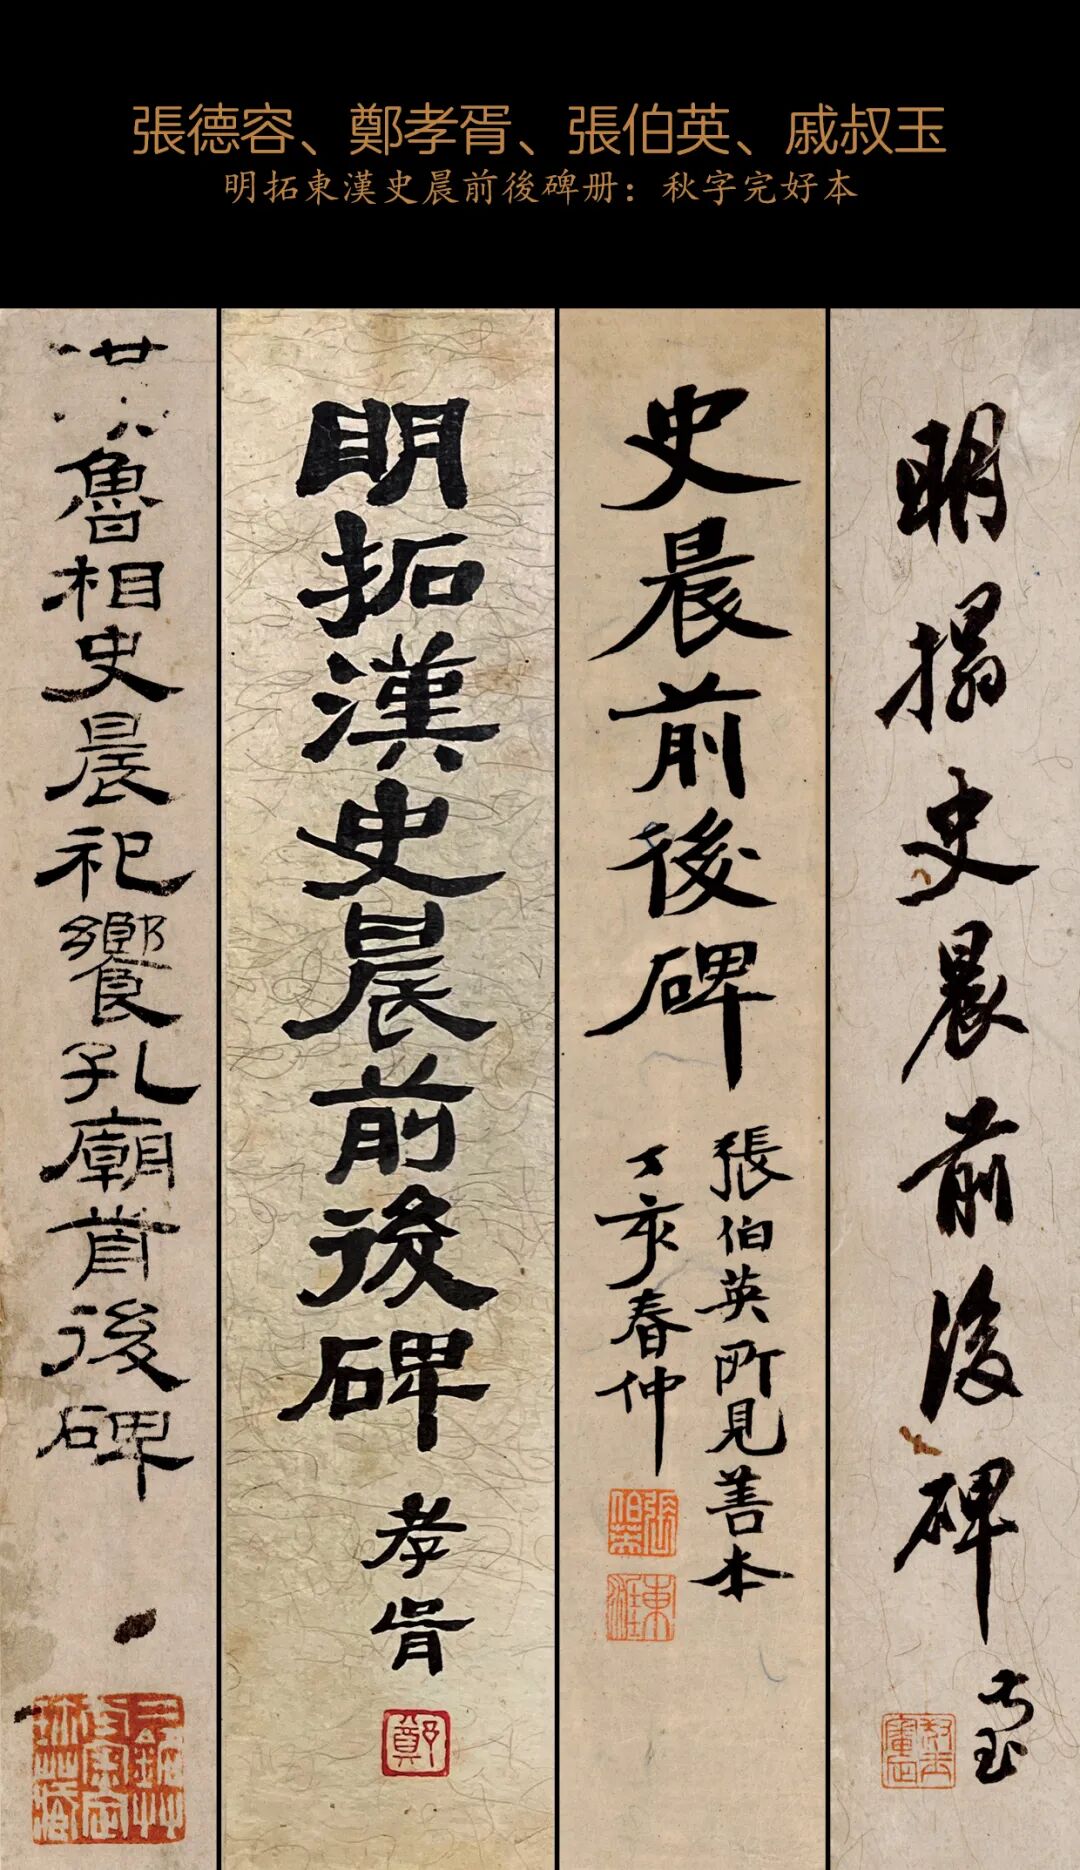 張德容、鄭孝胥、張伯英、戚叔玉
明拓東漢史晨前後碑册：秋字完好本
魯相史晨祀饗孔廟前後碑
明拓漢史晨前後碑
孝胥
鄭
史晨前後碑
張伯英所見善本
丁亥春仲
張伯英
東涯
明搨史晨前後碑